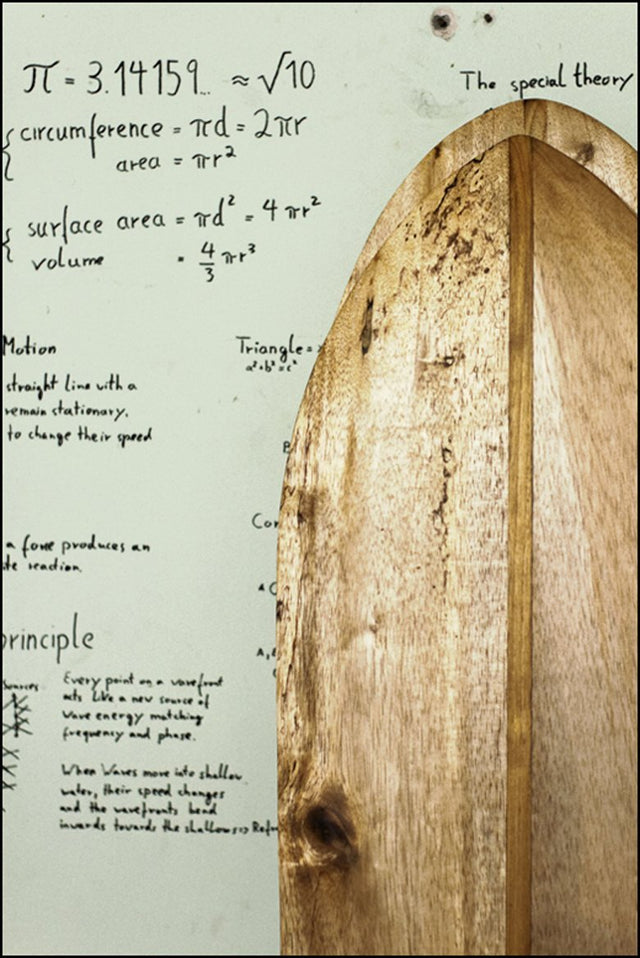 π = 3.14159... ≈ √10
The special theory
circumference = πd = 2πr
area = πr²
surface area = πd² = 4πr²
volume = 4/3 πr³
Motion
straight line with a
remain stationary.
to change their speed
Triangle =
a²+b²=c²
a force produces an
reaction.
principle
Sources
Every point on a wavefront
acts like a new source of
wave energy matching
frequency and phase.
When Waves move into shallow
water, their speed changes
and the wavefronts bend
inwards towards the shallows=>